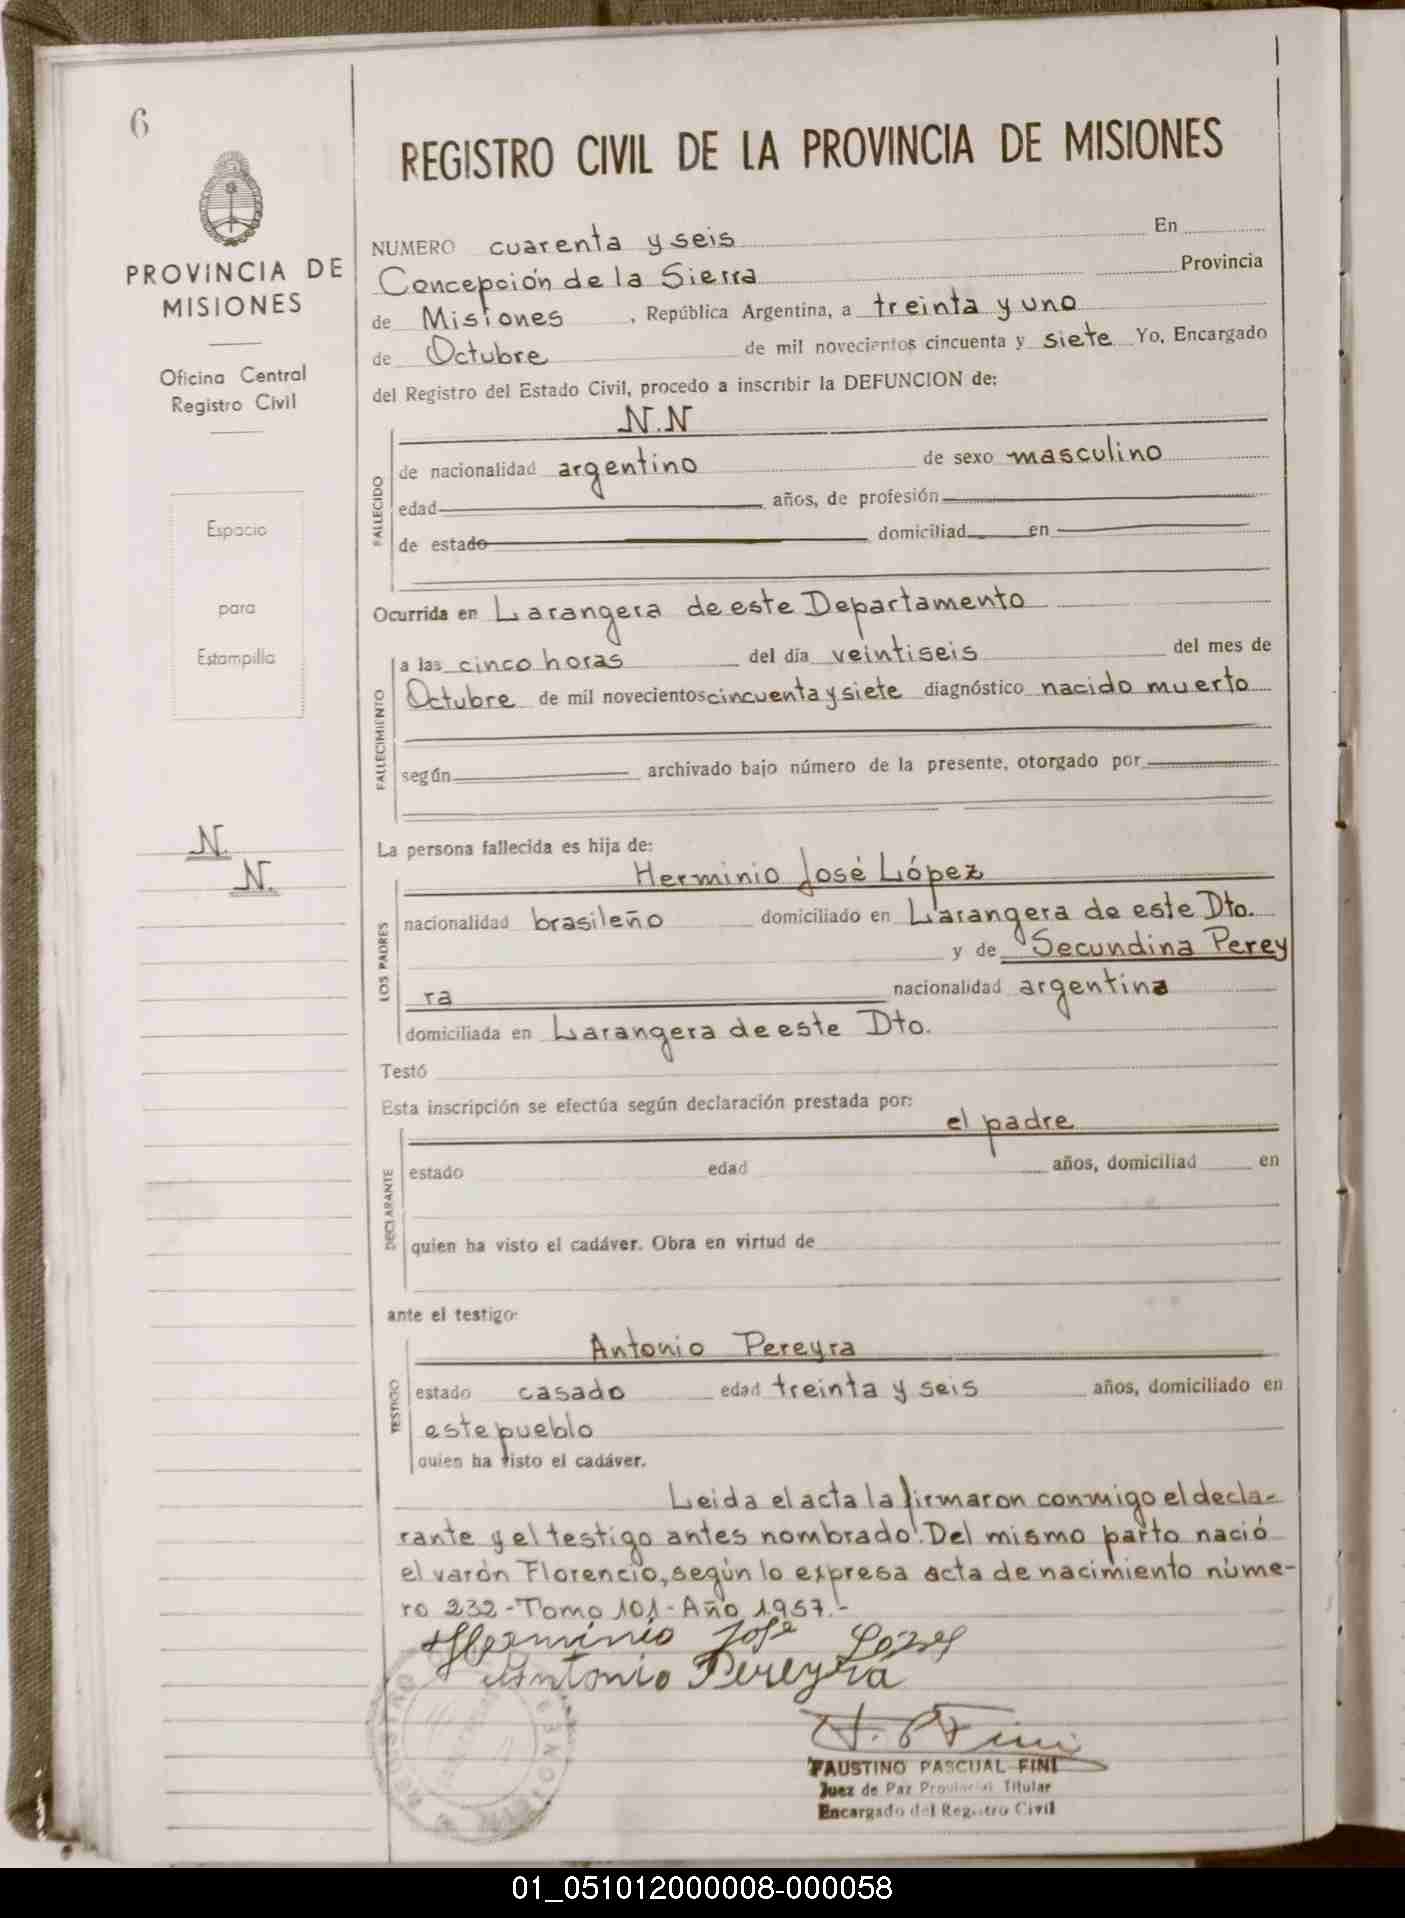 6
PROVINCIA DE
MISIONES
Oficina Central
Registro Civil
Espacio
para
Estampilla
N.
N.
REGISTRO CIVIL DE LA PROVINCIA DE MISIONES
NUMERO cuarenta y seis En
Concepción de la Sierra Provincia
de Misiones, República Argentina, a treinta y uno
de Octubre de mil novecientos cincuenta y siete Yo, Encargado
del Registro del Estado Civil, procedo a inscribir la DEFUNCION de:
N.N
FALLECIDO
de nacionalidad argentino de sexo masculino
edad años, de profesión
de estado domiciliad en
Ocurrida en Larangera de este Departamento
FALLECIMIENTO
a las cinco horas del día veintiseis del mes de
Octubre de mil novecientos cincuenta y siete diagnóstico nacido muerto
según archivado bajo número de la presente, otorgado por
La persona fallecida es hija de:
Herminio José López
LOS PADRES
nacionalidad brasileño domiciliado en Larangera de este Dto.
y de Secundina Perey
ra nacionalidad argentina
domiciliada en Larangera de este Dto.
Testó
Esta inscripción se efectúa según declaración prestada por:
el padre
DECLARANTE
estado edad años, domiciliad en
quien ha visto el cadáver. Obra en virtud de
ante el testigo:
Antonio Pereyra
TESTIGO
estado casado edad treinta y seis años, domiciliado en
este pueblo
quien ha visto el cadáver.
Leida el acta la firmaron conmigo el decla-
rante y el testigo antes nombrado. Del mismo parto nació
el varón Florencio, según lo expresa acta de nacimiento núme-
ro 232 - Tomo 101 - Año 1957.-
Herminio José Lopes
Antonio Pereyra
FAUSTINO PASCUAL FINI
Juez de Paz Provincial Titular
Encargado del Registro Civil
01_051012000008-000058